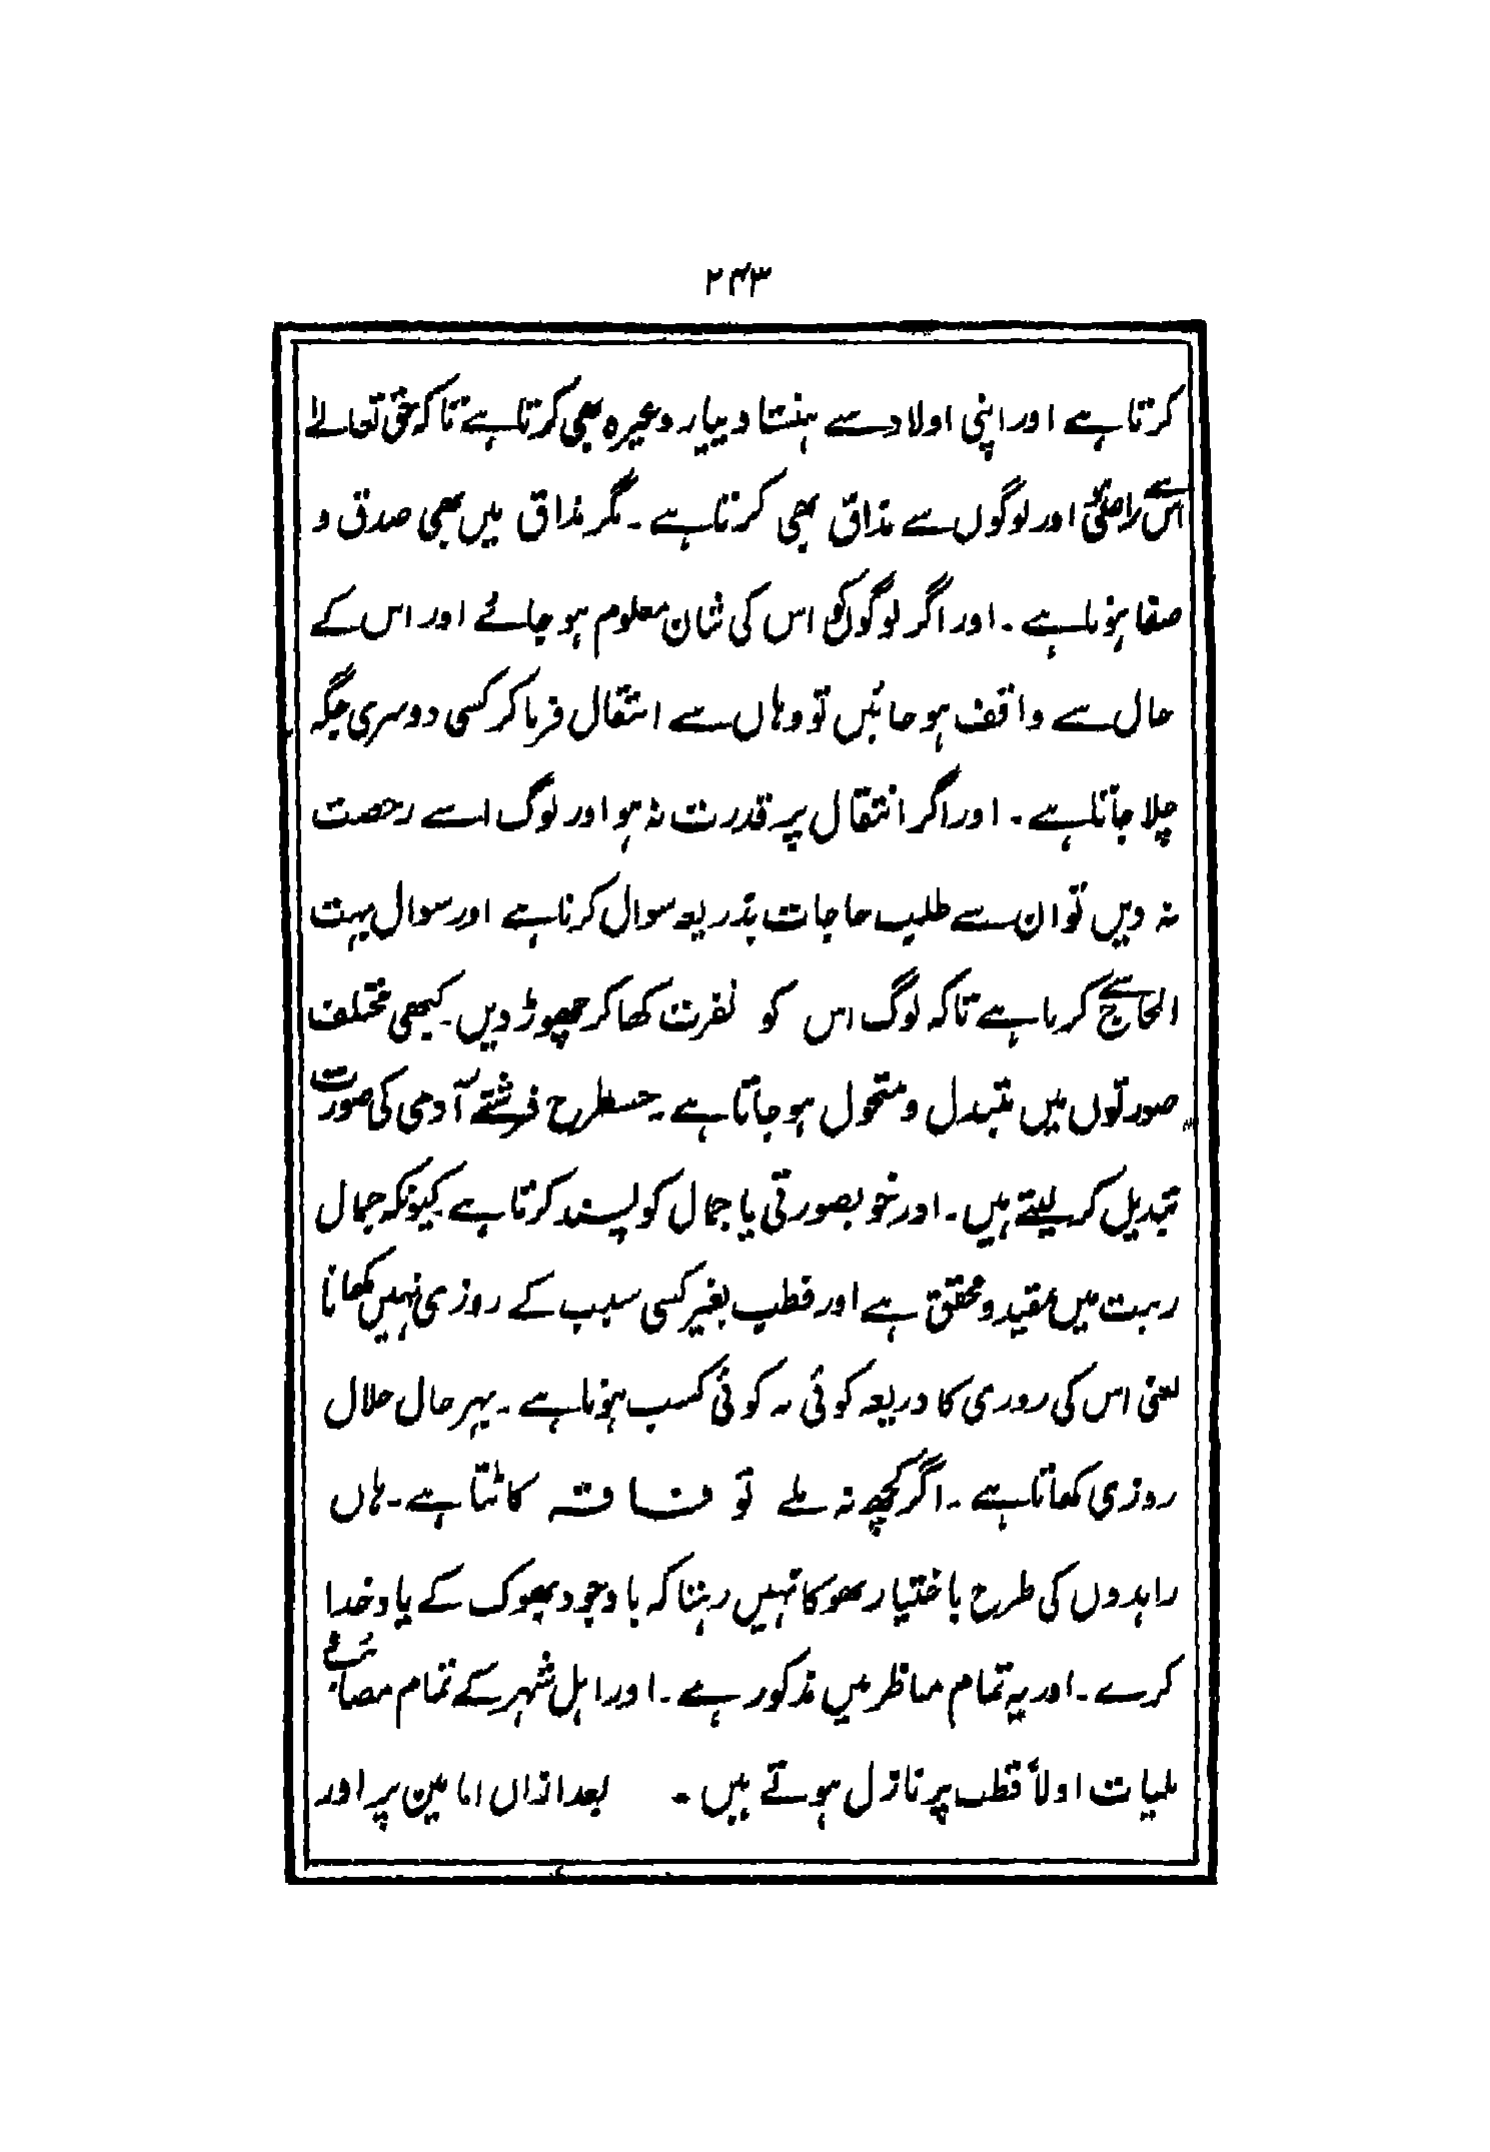 ۲۴۳
کرتا ہے اور اپنی اولاد سے ہنستا و پیار وغیرہ بھی کرتا ہے تاکہ حق تعالےٰ
اس سے راضی ہو اور لوگوں سے مذاق بھی کرتا ہے ۔ مگر مذاق میں بھی صدق و
صفا ہوتا ہے ۔ اور اگر لوگوں کو اس کی شان معلوم ہو جائے اور اس کے
حال سے واقف ہو جائیں تو وہاں سے انتقال فرما کر کسی دوسری جگہ
چلا جاتا ہے ۔ اور اگر انتقال پر قدرت نہ ہو اور لوگ اسے رخصت
نہ دیں تو ان سے طلب حاجات بذریعہ سوال کرتا ہے اور سوال بہت
الحاح سے کرتا ہے تاکہ لوگ اس کو نفرت کھا کر چھوڑ دیں ۔ کبھی مختلف
صورتوں میں متبدل و متحول ہو جاتا ہے ۔ جسطرح فرشتے آدمی کی صورت
تبدیل کر لیتے ہیں ۔ اور خوبصورتی یا جمال کو پسند کرتا ہے کیونکہ جمال
میں مقید و محقق ہے اور قطب بغیر کسی سبب کے روزی نہیں کھاتا
یعنی اس کی روزی کا ذریعہ کوئی نہ کوئی کسب ہوتا ہے ۔ بہر حال حلال
روزی کھاتا ہے ۔ اگر کچھ نہ ملے تو فاقہ کاٹتا ہے ۔ ہاں
زاہدوں کی طرح باختیار بھوکا نہیں رہتا کہ باوجود بھوک کے یاد خدا
کرے ۔ اور یہ تمام مناظر میں مذکور ہے ۔ اور اہل شہر کے تمام مصائب
بلیات اولاً قطب پر نازل ہوتے ہیں ۔ بعد ازاں امامین پر اور